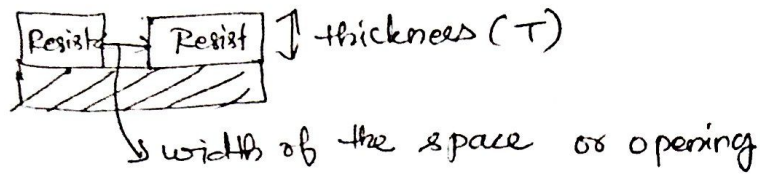 Resist Resist thickness (T)
width of the space or opening